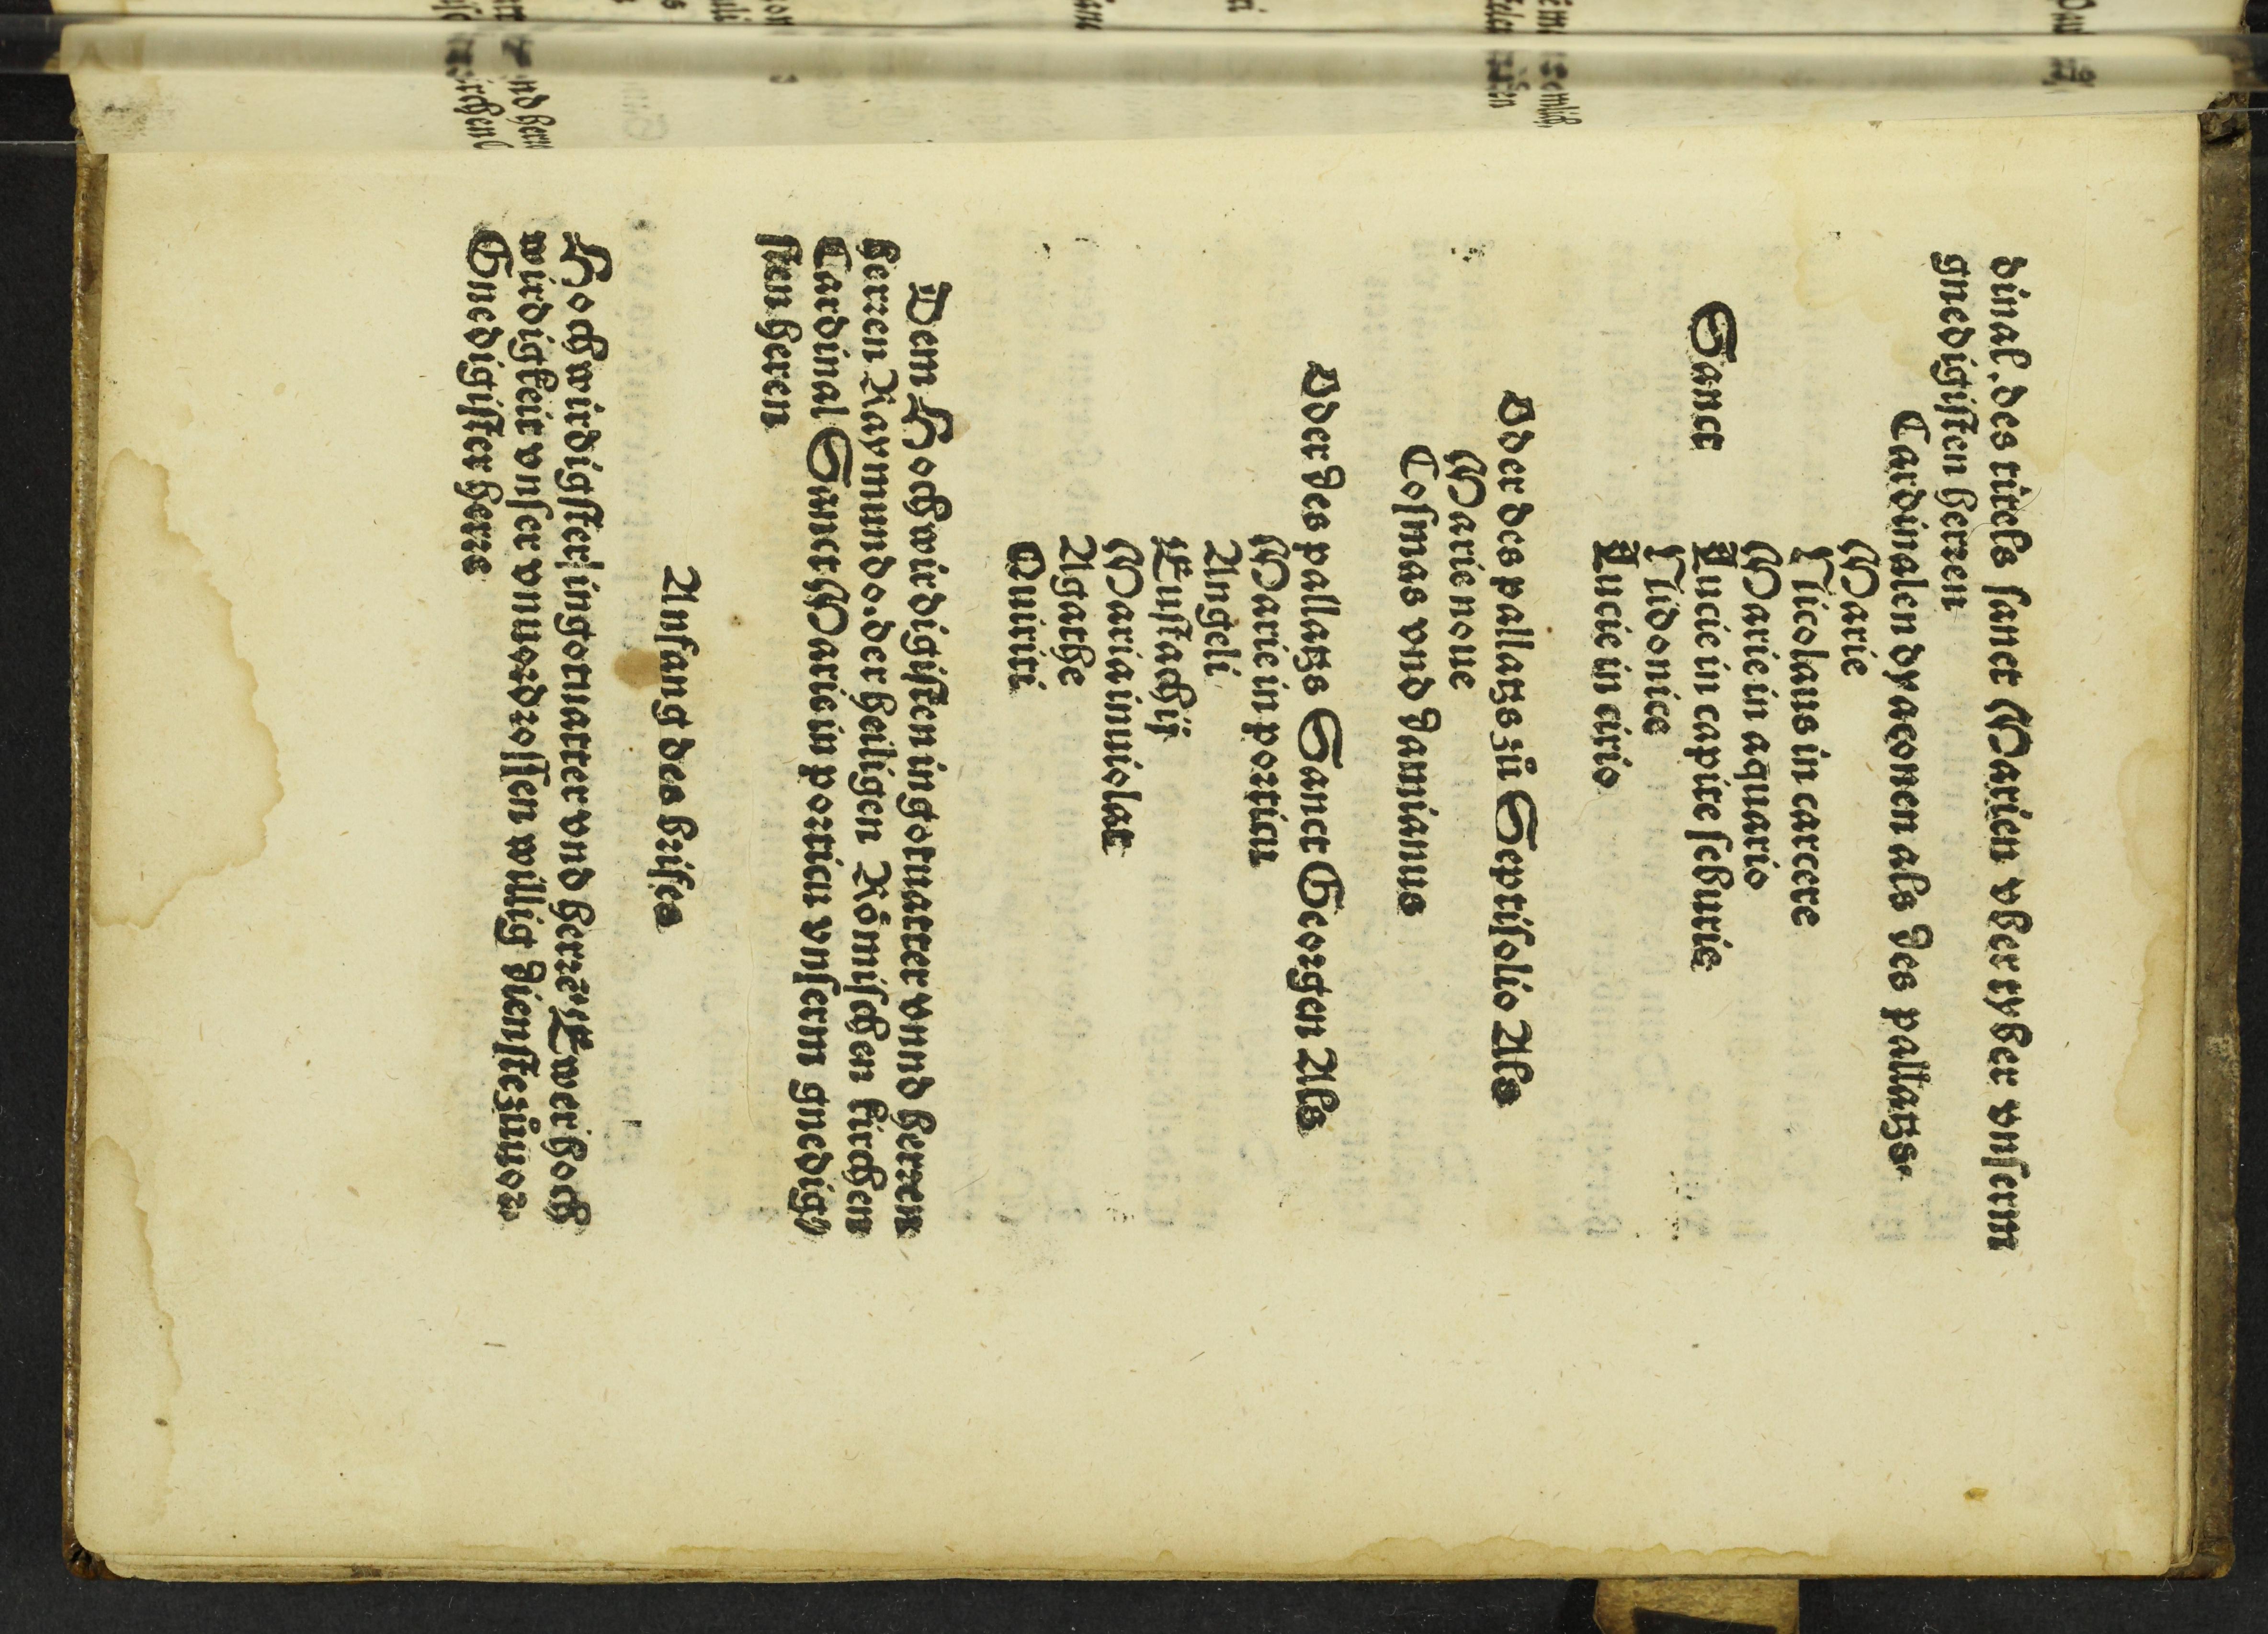 dinal. des titels sanct Marien vber tyber vnserm
gnedigisten herren
Cardinalen dyaconen als des pallatzs.
Marie
Nicolaus in carcere
Marie in aquario
Sanct Lucie in capite seburie
Nidonice
Lucie in cirio
Oder des pallatzs zů Septisolio Als
Marie noue
Cosmas vnd Damianus
Oder des pallatzs Sanct Georgen Als
Marie in porticu
Angeli
Eustachij
Maria inuiolate
Agathe
Quiriti
Dem Hochwirdigisten in got vatter vnnd herren
herren Raymundo. der heiligen Römischen kirchen
Cardinal Sanct Marie in porticu vnserm gnedig⸗
sten heren
Anfang des brifes
Hochwirdigster in got vatter vnd herre Ewer hoch
wirdigkeit vnser vnuordrossen willig dienste zůuor
Gnedigister herre